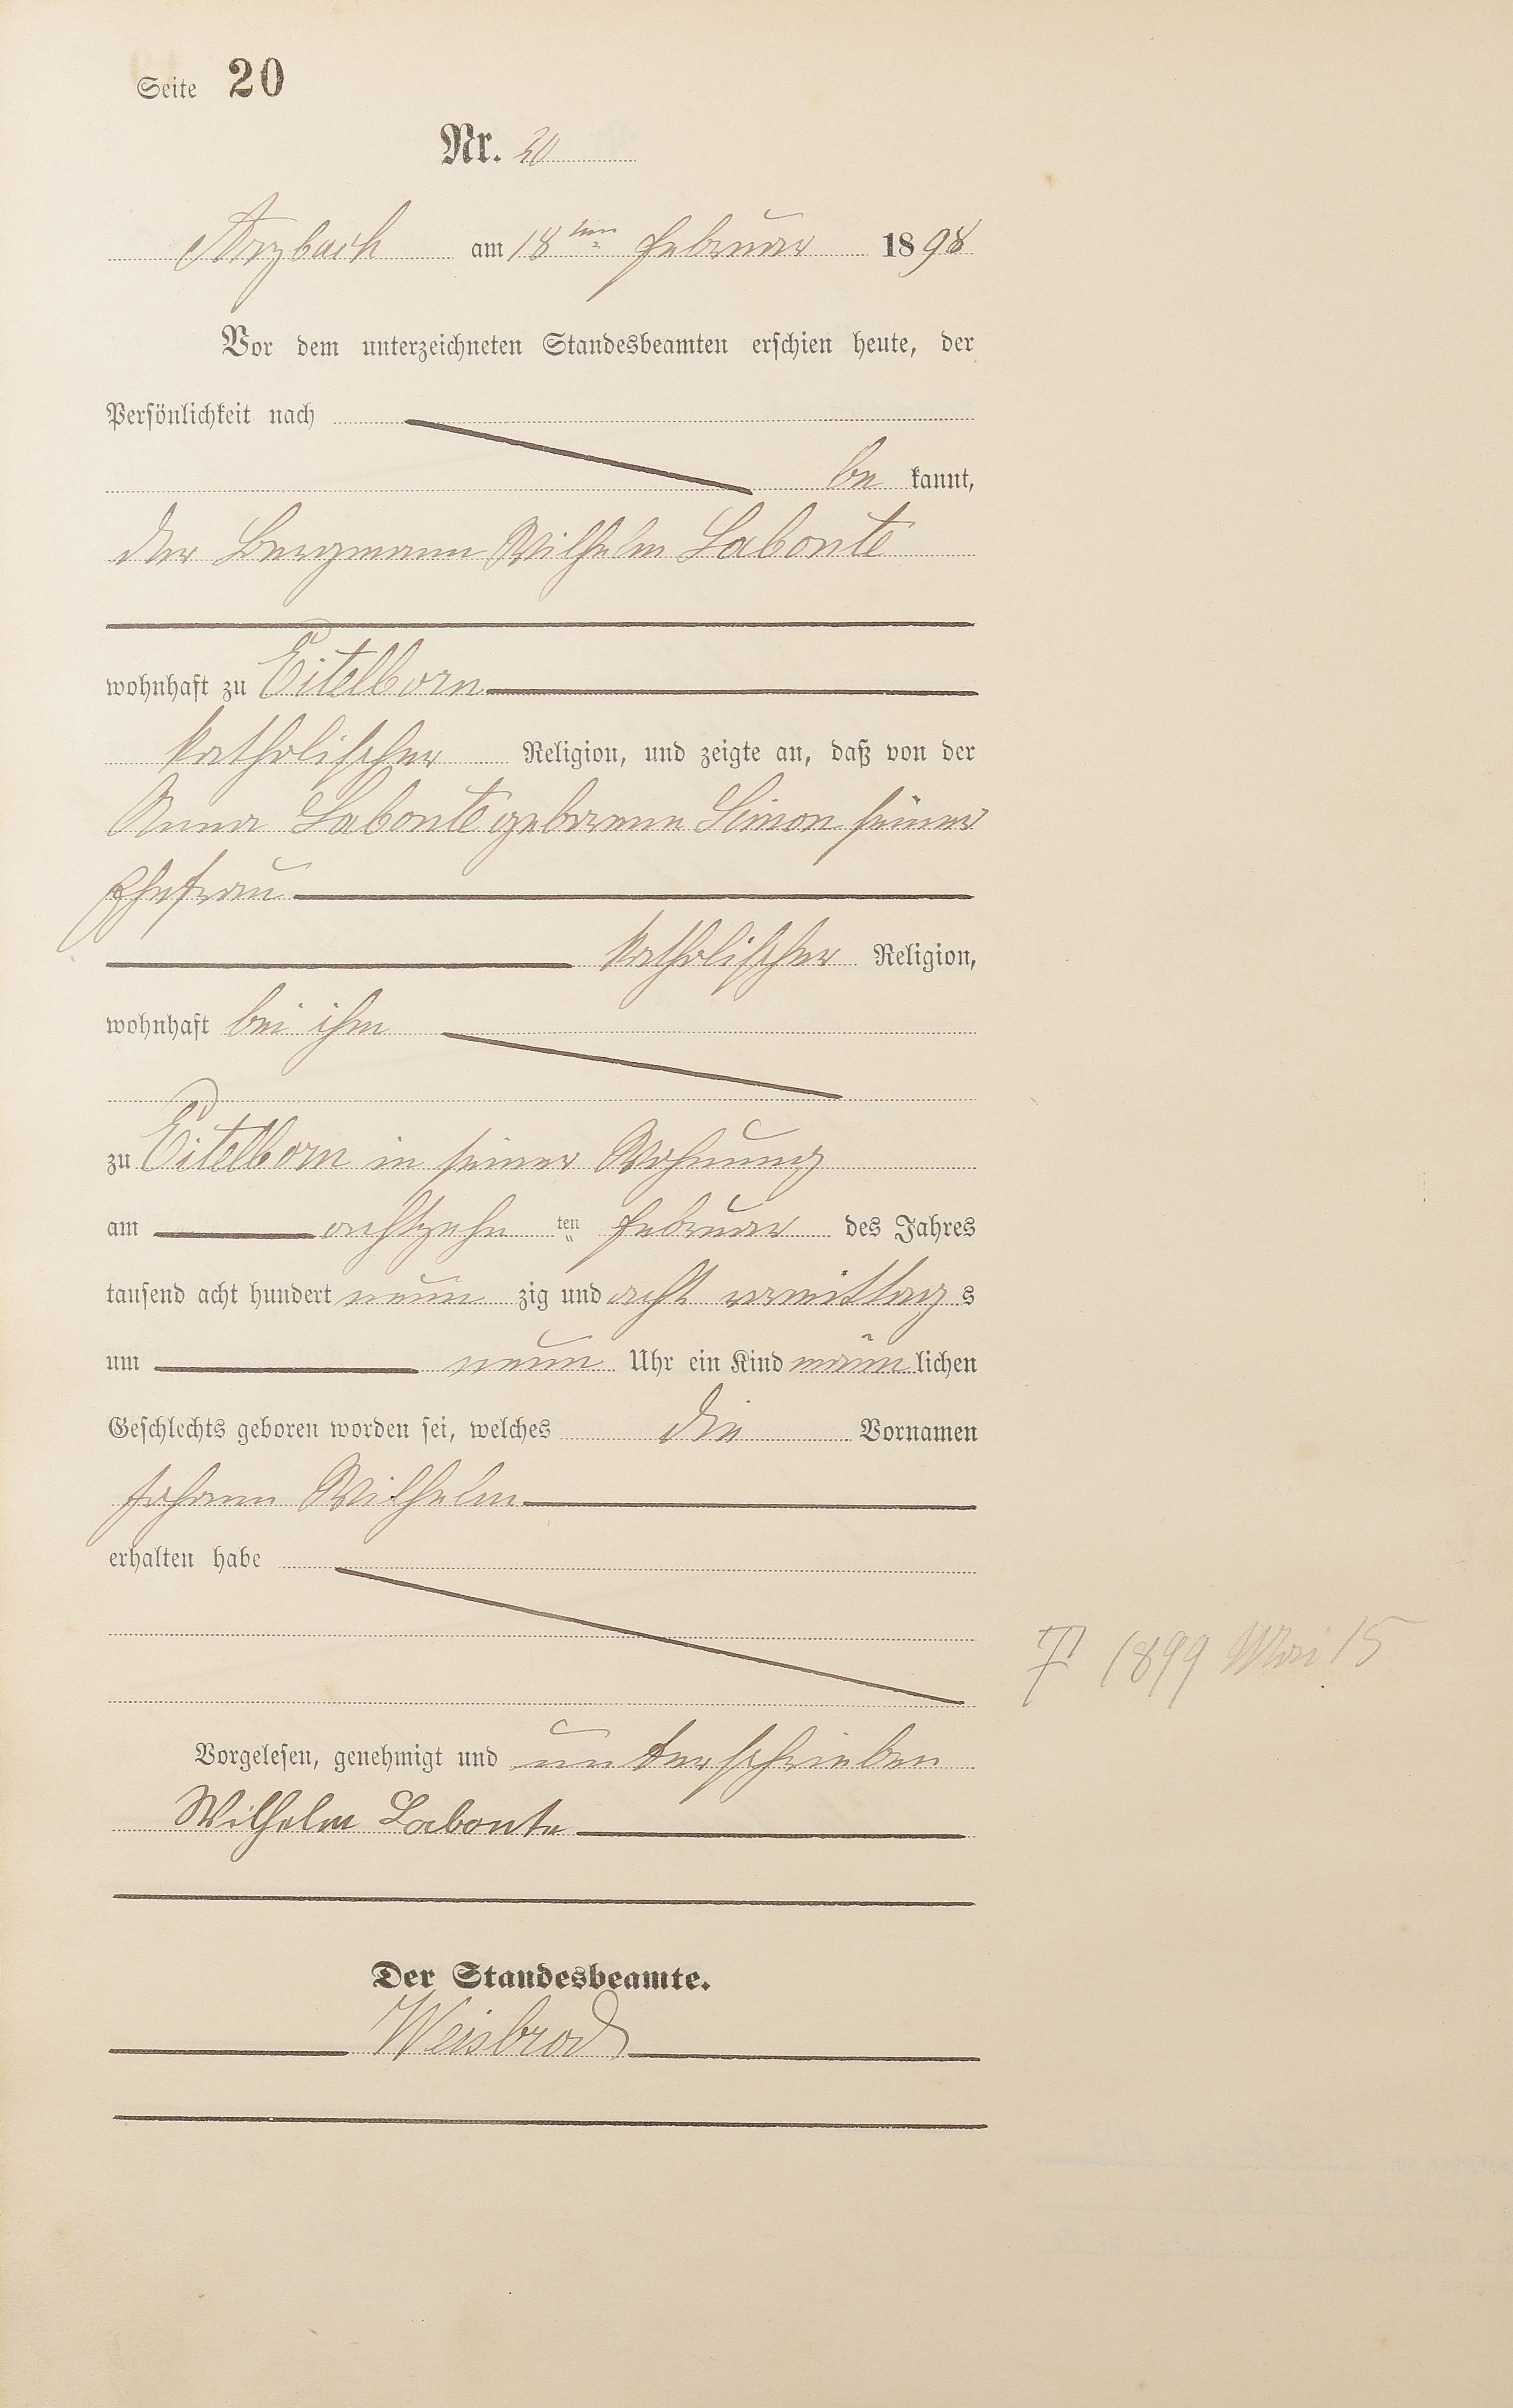 Seite 20
Nr. 20
Arzbach am 18ten Februar 1898
Vor dem unterzeichneten Standesbeamten erschien heute, der
Persönlichkeit nach
be kannt,
der Bergmann Wilhelm Labonte
wohnhaft zu Eitelborn
katholischer Religion, und zeigte an, daß von der
Anna Labonte geborenen Simon seiner
Ehefrau
katholischer Religion,
wohnhaft bei ihm
zu Eitelborn in seiner Wohnung
am achtzehn ten Februar des Jahres
tausend acht hundert neun zig und acht vormittag s
um neun Uhr ein Kind männ lichen
Geschlechts geboren worden sei, welches die Vornamen
Johann Wilhelm
erhalten habe
† 1899 Mai 15
Vorgelesen, genehmigt und unterschrieben
Wilhelm Labonte
Der Standesbeamte.
Weisbrod